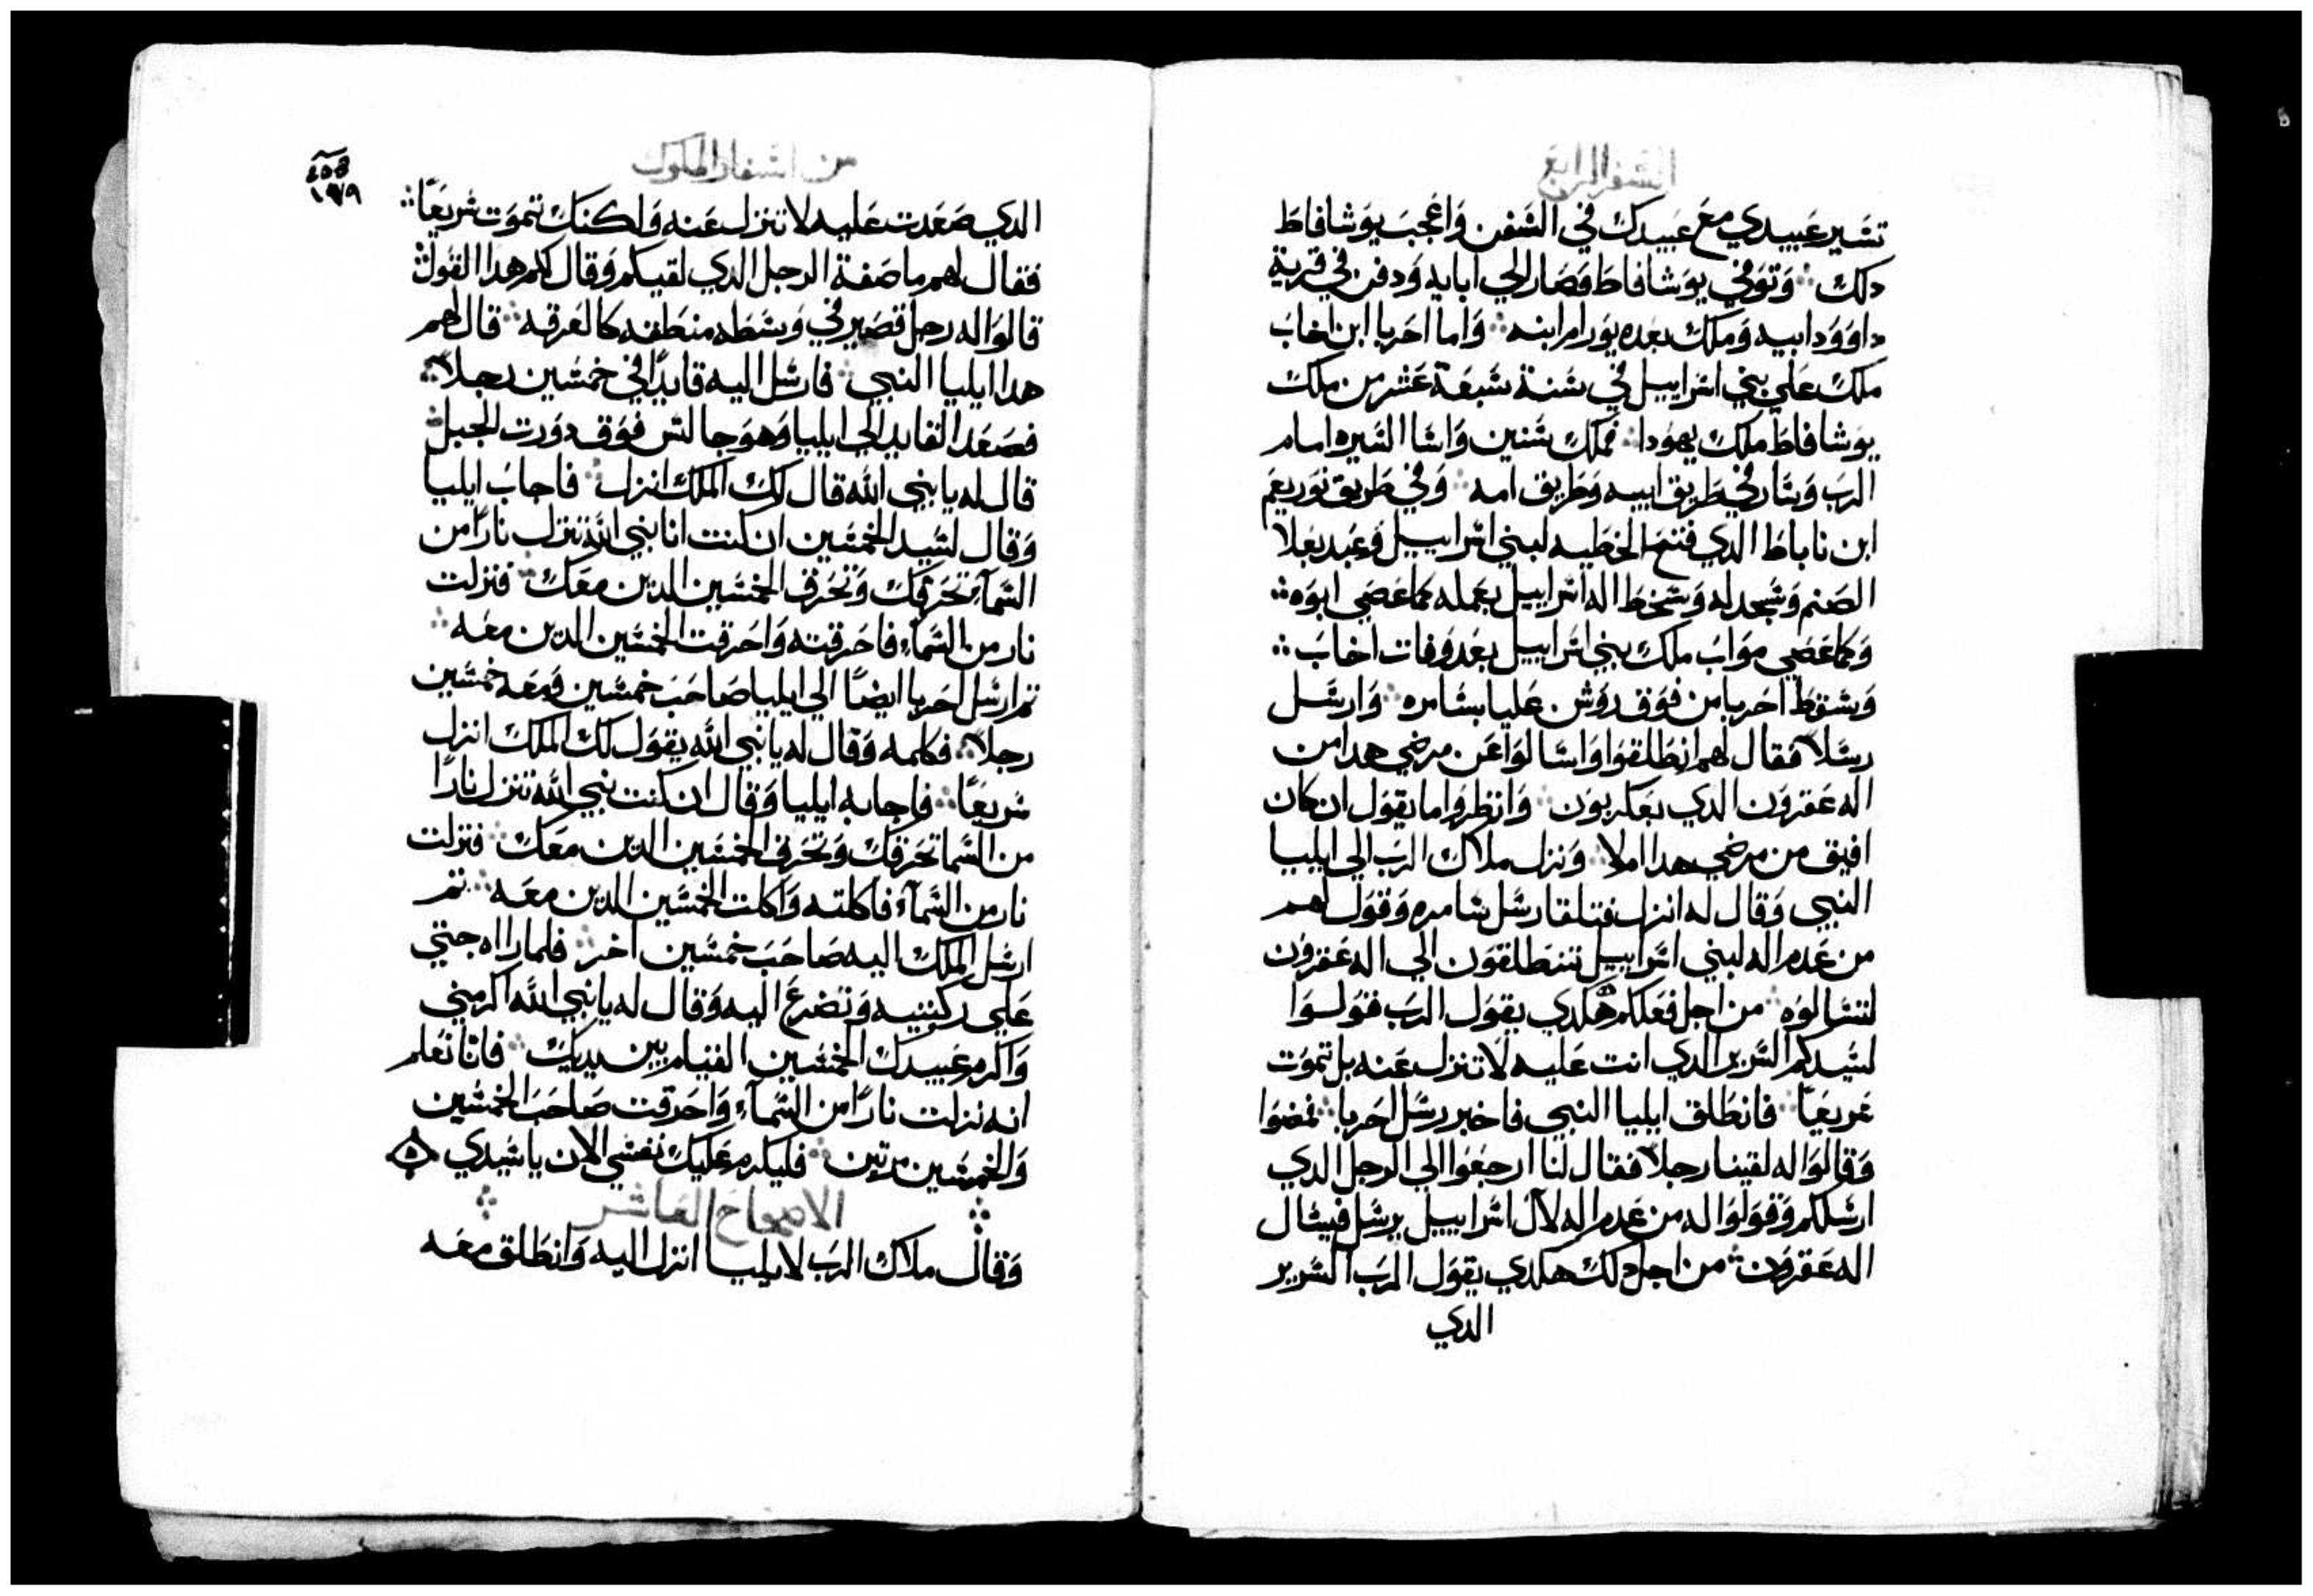 السفر الرابع
تسير عبيدي مع عبيدك في السفن واعجب يوشافاط
دلك ∴ وتوفي يوشافاط وصار الي ابايه ودفن في قرية
داوود ابيه وملك بعده يورام ابنه ∴ واما احزيا ابن اخاب
ملك علي بني اسراييل في سنة سبعة عشر من ملك
يوشافاط ملك يهودا ∴ فملك سنتين واسا السيره امام
الرب وسار في طريق ابيه وطريق امه ∴ وفي طريق نوربعم
ابن ناباط الدي فتح الخطيه لبني اسراييل وعبد بعلا
الصنم وسجد له وسخط اله اسراييل بعمله كما عصي ابوه ∴
وكما عصي مواب ملك بني اسراييل بعد وفات اخاب ∴
وسقط احزيا من فوق روشن عليا بسامره ∴ وارسل
رسلاً فقال لهم انطلقوا واسالوا عن مرضي هدا من
اله عقرون الدي بعلزبون ∴ وانظروا ما يقول ان كان
افيق من مرضي هدا ام لا ∴ ونزل ملاك الرب الي ايليا
النبي وقال له انزل فتلقا رسل سامره وقول لهم
من عدم اله لبني اسراييل تنطلقون الي اله عقرون
لتسالوه ∴ من اجل فعلكم هكدي يقول الرب قولوا
لسيدكم السرير الدي انت عليه لا تنزل عنه بل تموت
سريعاً ∴ فانطلق ايليا النبي فاخبر رسل احزيا ∴ فمضوا
وقالوا له لقينا رجلاً فقال لنا ارجعوا الي الرجل الدي
ارسلكم وقولوا له من عدم اله لال اسراييل يرسل فيسال
اله عقرون ∴ من اجل دلك هكدي يقول الرب السرير
الدي
من اسفار الملوك
٤٥٨
الدي صعدت عليه لا تنزل عنه ولكنك تموت سريعاً ∴
فقال لهم ما صفة الرجل الدي لقيكم وقال لكم هدا القول ∴
قالوا له رجل قصير في وسطه منطقه كالعرقه ∴ قال لهم
هدا ايليا النبي ∴ فارسل اليه قايداً في خمسين رجلاً ∴
فصعد القايد الي ايليا وهو جالس فوق دورت الجبل ∴
قال له يا نبي الله قال لك الملك انزل ∴ فاجاب ايليا
وقال لسيد الخمسين ان كنت انا نبي الله تنزل ناراً من
السماء تحرقك وتحرق الخمسين الدين معك ∴ فنزلت
نار من السماء فاحرقته واحرقت الخمسين الدين معه ∴
تم ارسل احزيا ايضاً الي ايليا صاحب خمسين ومعه خمسين
رجلاً ∴ فكلمه وقال له يا نبي الله يقول لك الملك انزل
سريعاً ∴ فاجابه ايليا وقال ان كنت نبي الله تنزل ناراً
من السما تحرقك وتحرق الخمسين الدين معك ∴ فنزلت
نار من السماء فاكلته واكلت الخمسين الدين معه ∴ تم
ارسل الملك اليه صاحب خمسين اخر ∴ فلما راه جتي
علي ركبتيه وتضرع اليه وقال له يا نبي الله اكرمني
واكرم عبيدك الخمسين القيام بين يديك ∴ فانا نعلم
انه نزلت ناراً من السماء واحرقت صاحب الخمسين
والخمسين مرتين ∴ فليكرم عليك نفسي الان يا سيدي
الاصحاح العاشر
وقال ملاك الرب لايليا انزل اليه وانطلق معه